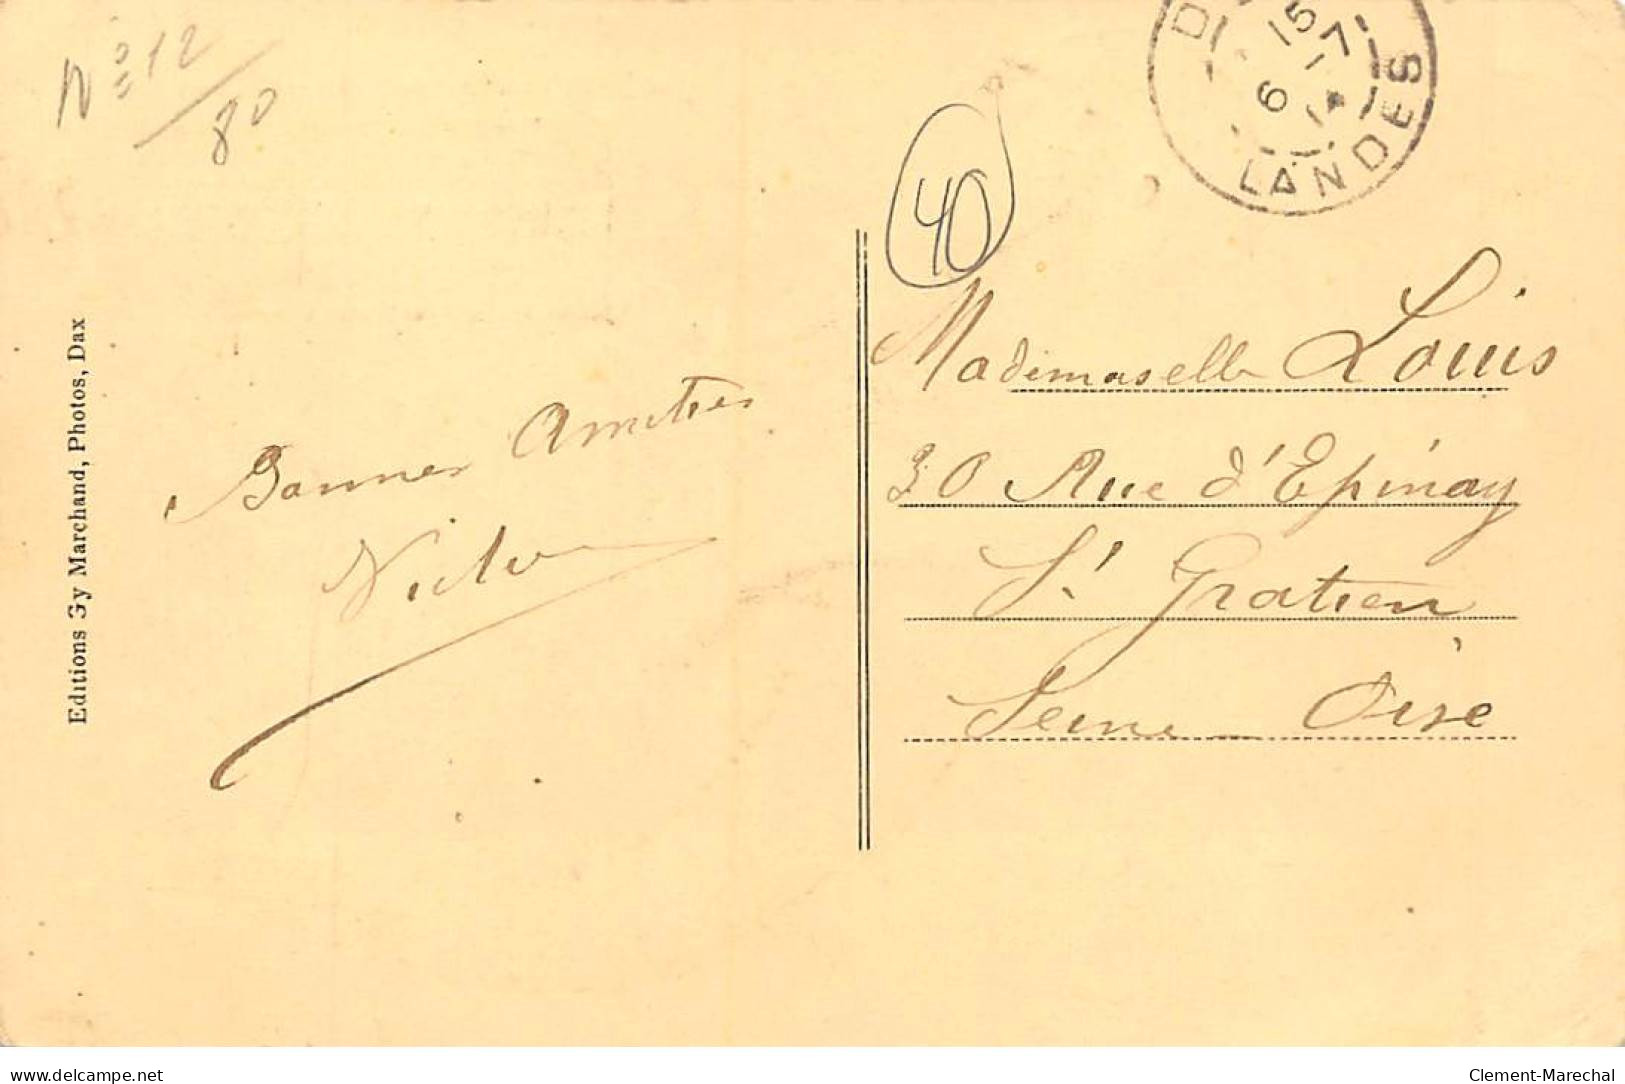 Nº 12
80
40
D
15
6 -7
14
LANDES
Editions Gy Marchand, Photos, Dax
Bonnes Amitiés
Victor
Mademoiselle Louis
30 Rue d'Epinay
St Gratien
Seine - Oise
www.delcampe.net
Clement-Marechal